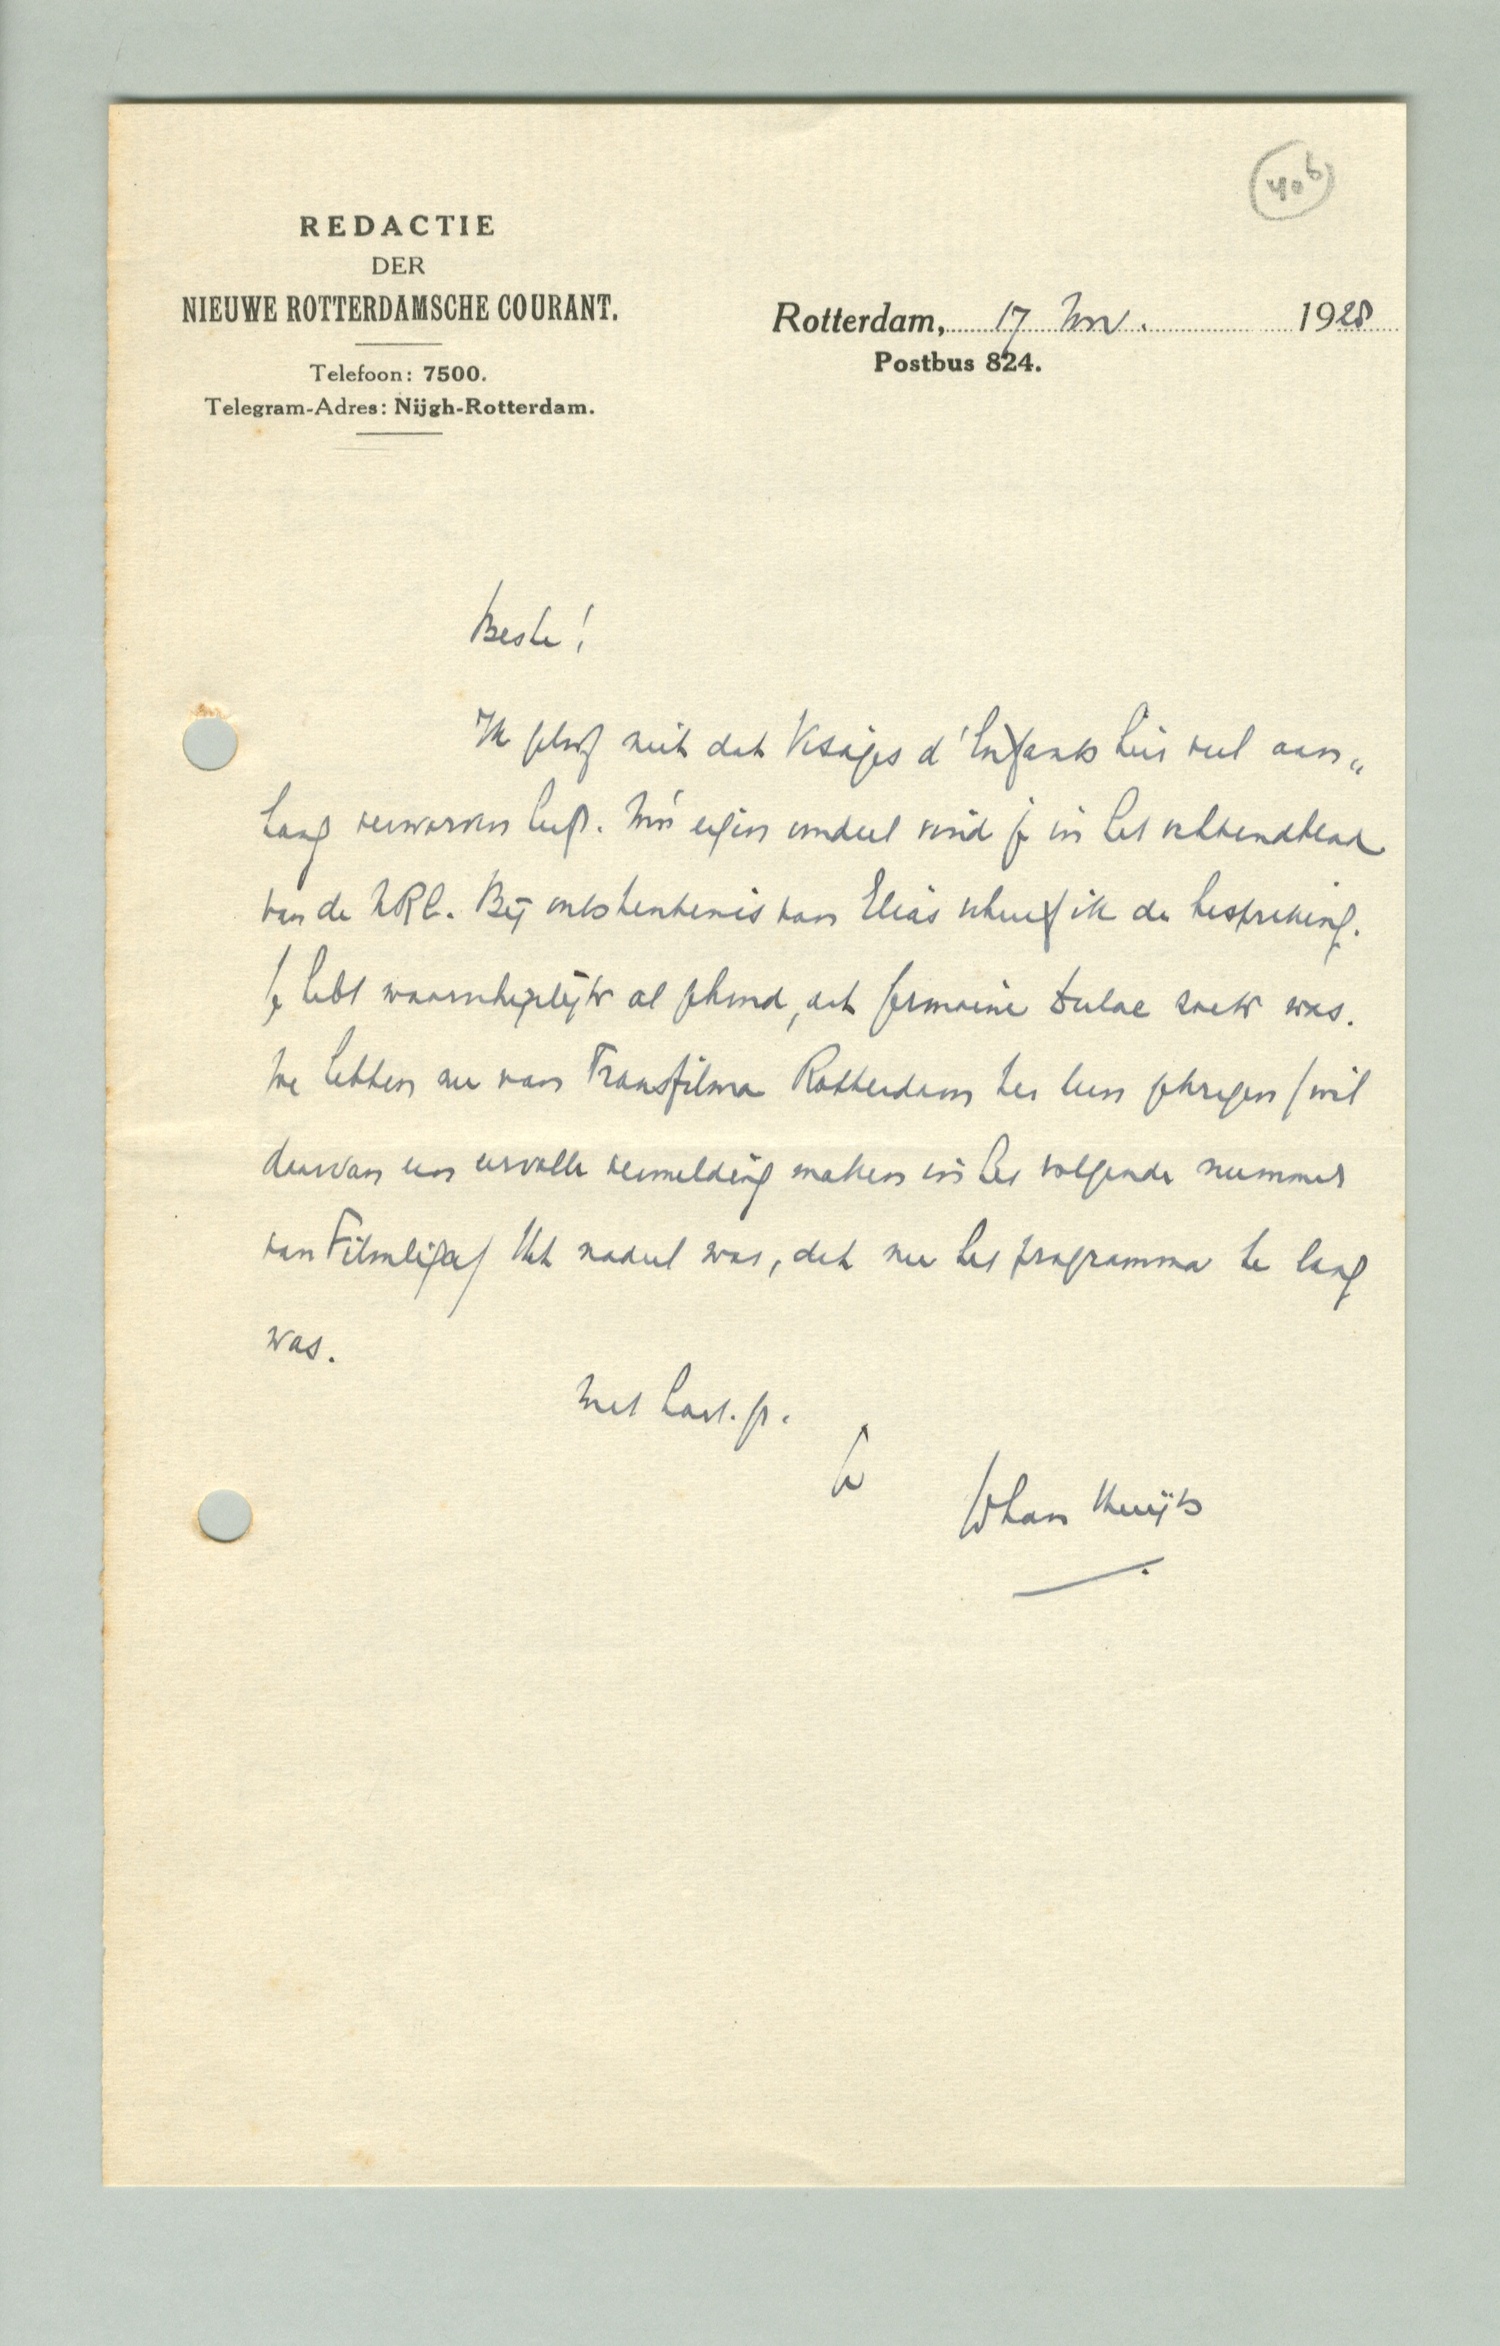 40b
REDACTIE
DER
NIEUWE ROTTERDAMSCHE COURANT.
Rotterdam, 17 Nov. 1928
Postbus 824.
Telefoon: 7500.
Telegram-Adres: Nijgh-Rotterdam.
Beste!
Ik geloof niet dat Visages d'Enfants hier veel aan„
hang verworven heeft. M'n eigen oordeel vind je in het ochtendblad
van de NRC. Bij ontstentenis van Elias schreef ik de bespreking.
Je hebt waarschijnlijk al gehoord, dat Germaine Dulac ziek was.
We hebben nu van Transfilma Rotterdam het leen gekregen (wil
daarvan een eervolle vermelding maken in het volgende nummer
van Filmliga) Het nadeel was, dat nu het programma te lang
was.
Met hart. gr.
je
Johan Huijts